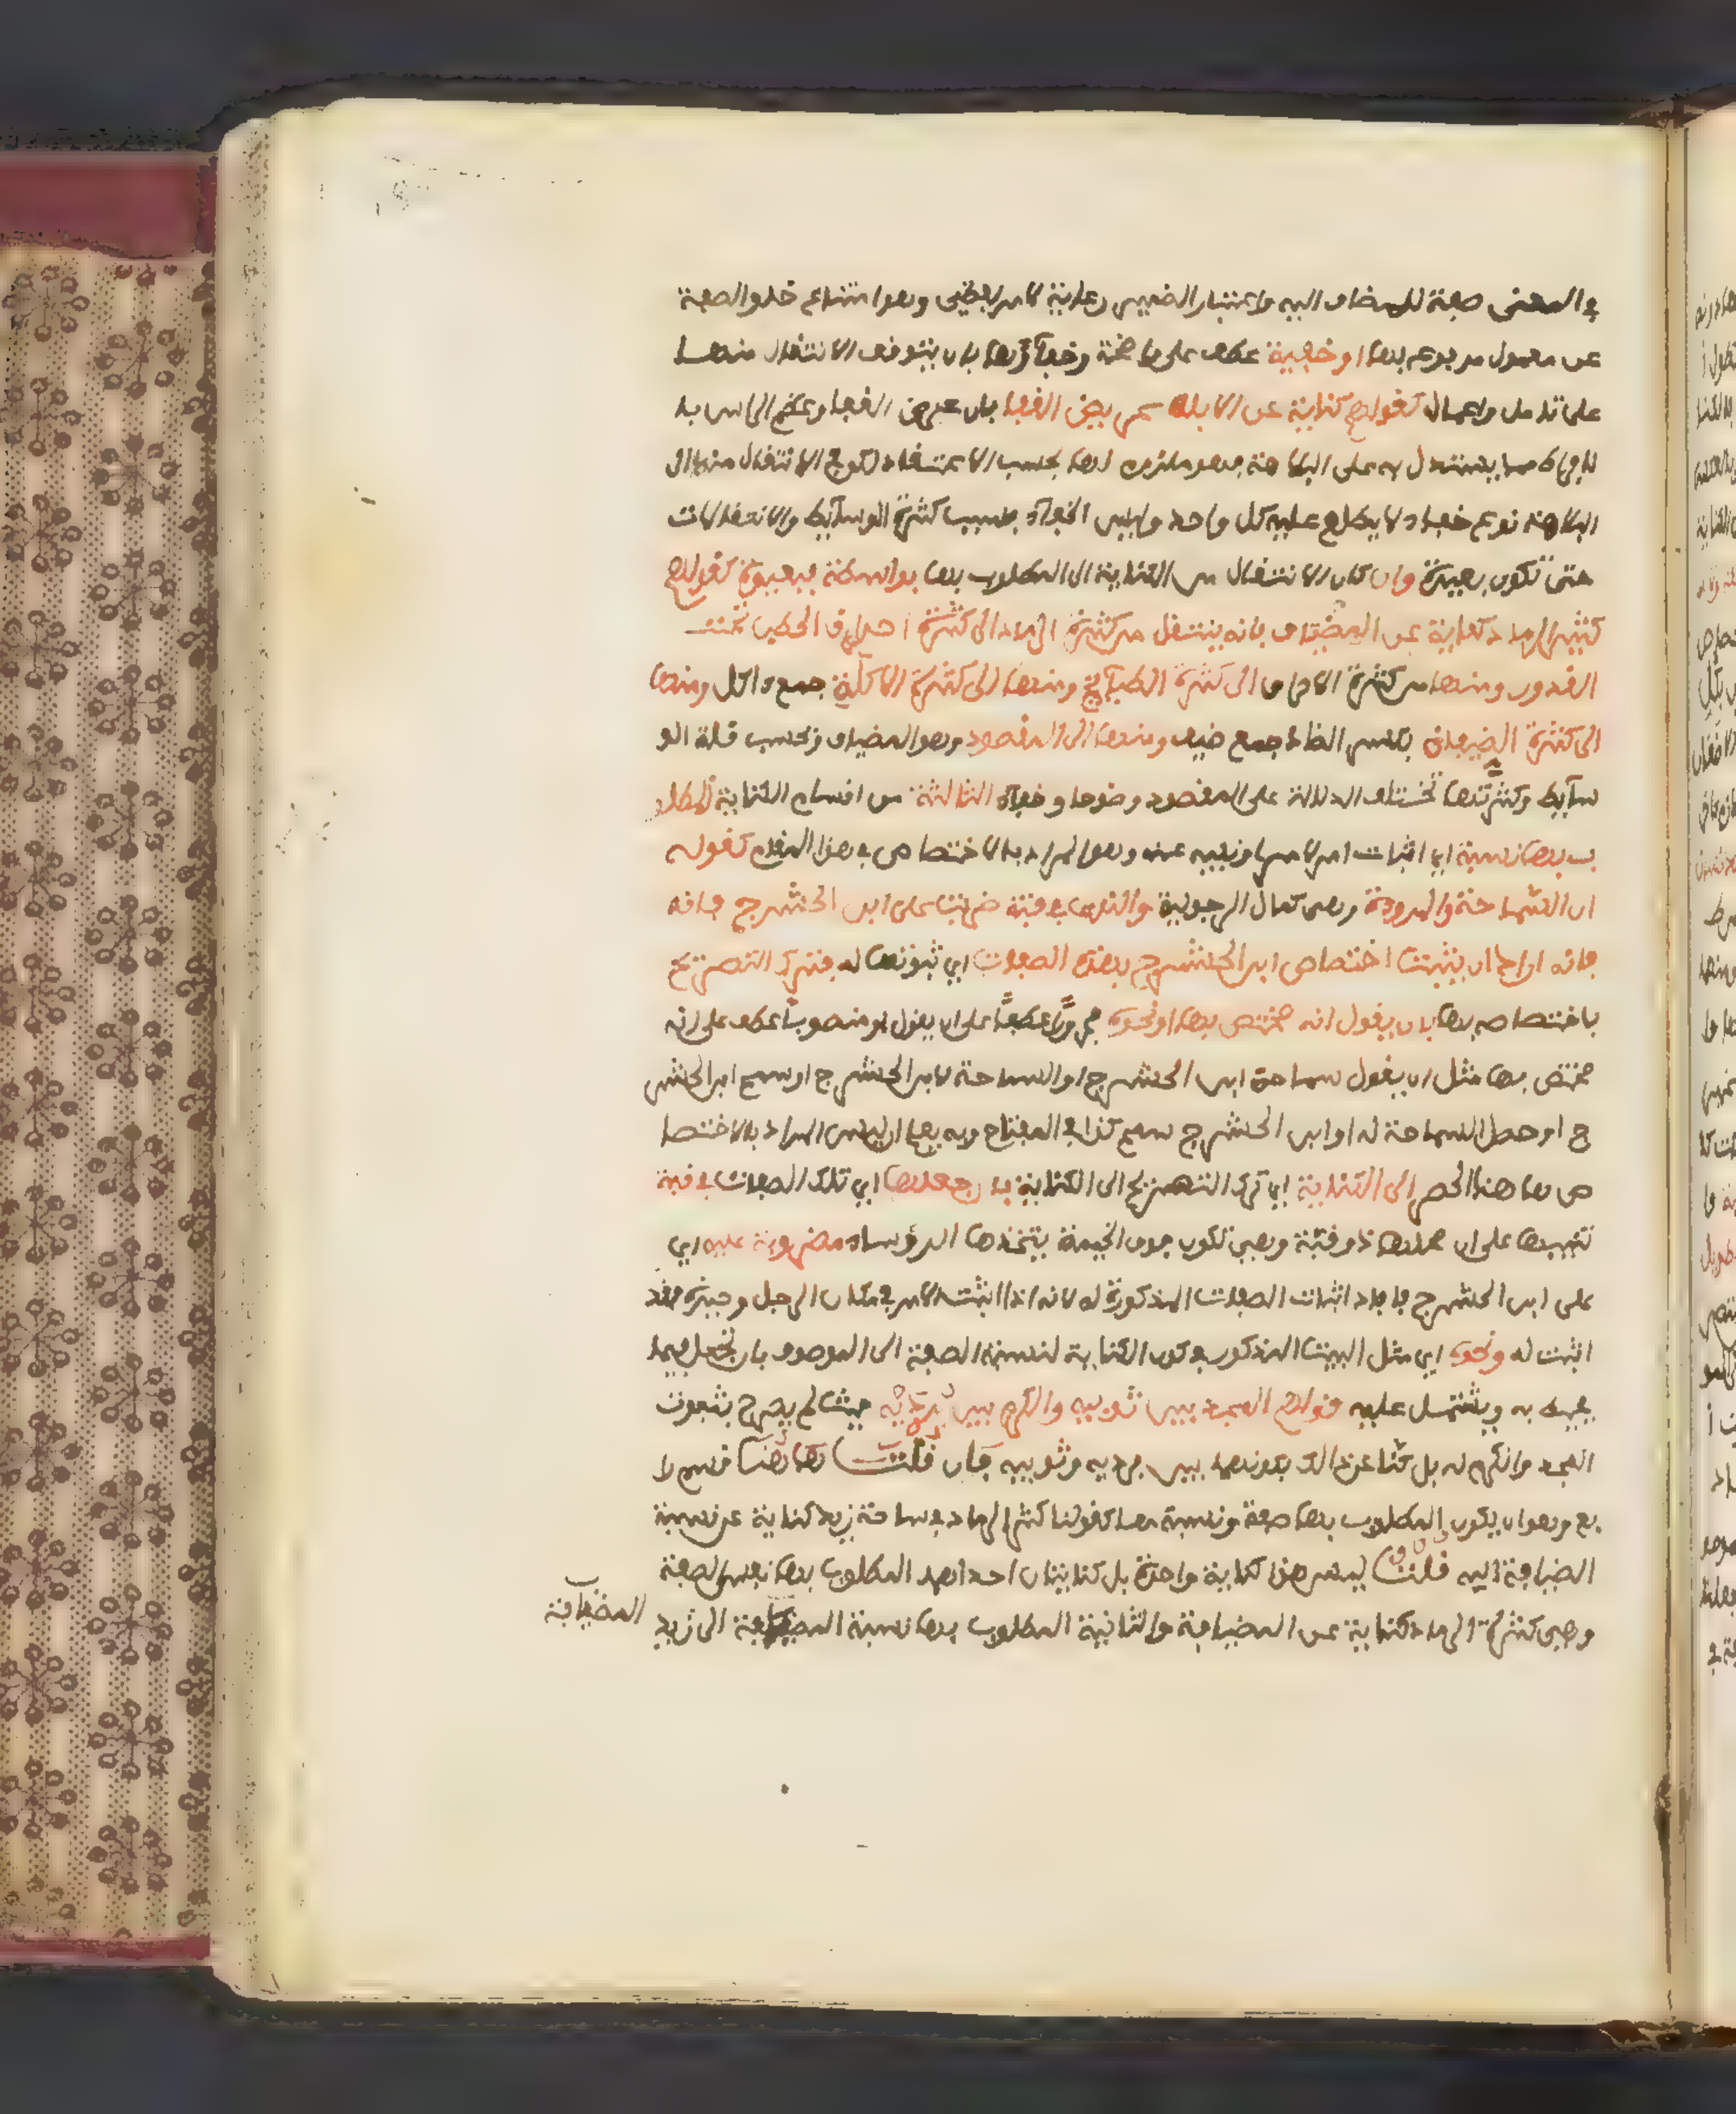 في المعنى صفة للمضاف اليه واعتبار الضمير رعاية لامر لفظي وهو امتناع خلو الصفة
عن معمول مرفوع بها او خفية عطف على واضحة وخفاؤها بان يتوقف الانتقال منها
على تامل واعمال كقولهم كناية عن الابله عريض القفا بان عرض القفا وعظم الراس بالا
فراط مما يستدل به على البلاهة فهو ملزوم لها بحسب الاعتقاد لكن في الانتقال منه الى
البلاهة نوع خفاء لا يطلع عليه كل واحد وليس الخفاء بسبب كثرة الوسائط والانتقالات
حتى تكون بعيدة وان كان الانتقال من الكناية الى المطلوب بها بواسطة فبعيدة كقولهم
كثير الرماد كناية عن المضياف فانه ينتقل من كثرة الرماد الى كثرة احراق الحطب تحت
القدور ومنها من كثرة الاحراق الى كثرة الطبائخ ومنها الى كثرة الاكلة جمع اكل ومنها
الى كثرة الضيفان بكسر الضاد جمع ضيف ومنها الى المقصود وهو المضياف وبحسب قلة الو
سائط وكثرتها تختلف الدلالة على المقصود وضوحا وخفاء الثالثة من اقسام الكناية المطلو
ب بها نسبة اي اثبات امر لامر او نفيه عنه وهو المراد بالاختصاص في هذا المقام كقوله
ان السماحة والمروءة وهي كمال الرجولية والندى في قبة ضربت على ابن الحشرج فانه
فانه اراد ان يثبت اختصاص ابن الحشرج بهذه الصفات اي ثبوتها له فترك التصريح
باختصاصه بها بان يقول انه مختص بها او نحوه مجرورا عطفا على ان يقول او منصوبا عطف على انه
مختص بها مثل ان يقول سماحة ابن الحشرج او السماحة لابن الحشرج او سمح ابن الحشر
ج او حصل السماحة له او ابن الحشرج سمح كذا في المفتاح وبه يعرف ان ليس المراد بالاختصا
ص هاهنا الحصر الى الكناية اي ترك التصريح الى الكناية بان جعلها اي تلك الصفات في قبة
تنبيها على ان محلها ذو قبة وهي تكون فوق الخيمة يتخذها الرؤساء مضروبة عليه اي
على ابن الحشرج فافاد اثبات الصفات المذكورة له لانه اذا اثبت الامر في مكان الرجل وحيزه فقد
اثبت له ونحوه اي مثل البيت المذكور في كون الكناية لنسبة الصفة الى الموصوف بان تجعل فيما
يحيط به ويشتمل عليه قولهم المجد بين ثوبيه والكرم بين برديه حيث لم يصرح بثبوت
المجد والكرم له بل كنا عن ذالك بكونهما بين برديه وثوبيه فان قلت هاهنا قسم را
بع وهو ان يكون المطلوب بها صفة ونسبة معا كقولنا كثر الرماد في ساحة زيد كناية عن نسبة
الضيافة اليه قلت ليس هذا كناية واحدة بل كنايتان احداهما المطلوب بها نفس الصفة
وهي كثرة الرماد كناية عن المضيافية والثانية المطلوب بها نسبة المضيافية الى زيد
المضيافية